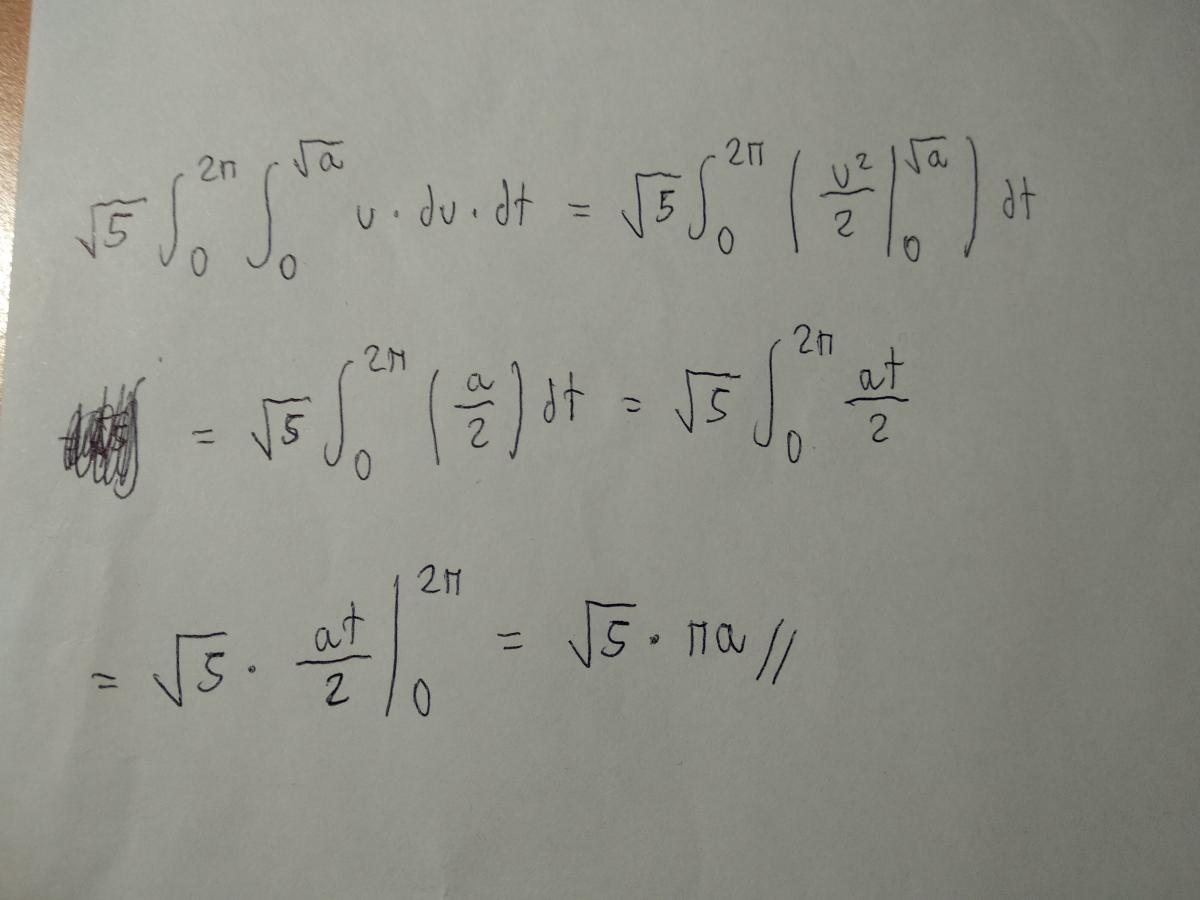 √5 ∫₀^{2π} ∫₀^{√a} v · dv · dt = √5 ∫₀^{2π} ( v²/2 |₀^{√a} ) dt
= √5 ∫₀^{2π} ( a/2 ) dt = √5 ∫₀^{2π} at/2
= √5 · at/2 |₀^{2π} = √5 · πa //